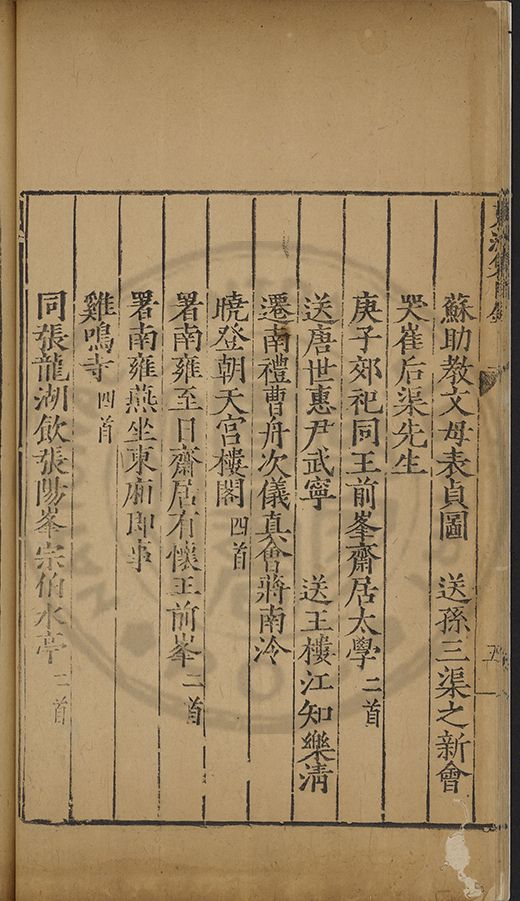 蘇助教文母表貞圖　送孫三渠之新會
哭崔后渠先生
庚子郊祀同王前峯齋居太學二首
送唐世惠尹武寧　送王樓江知樂清
遷南禮曹舟次儀真會蔣南泠
曉登朝天宮樓閣四首
署南雍至日齋居有懷王前峯二首
署南雍燕坐東廂即事
雞鳴寺四首
同張龍湖飲張陽峯宗伯水亭二首